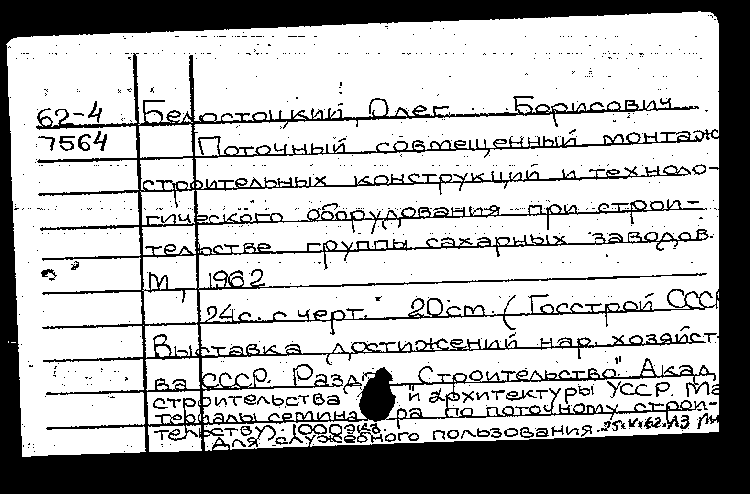 62-4 Белостоцкий, Олег Борисович
7564 Поточный совмещенный монтаж
строительных конструкций и техноло-
гического оборудования при строи-
тельстве группы сахарных заводов.
М, 1962
24с. с черт. 20cm. (Госстрой СССР
Выставка достижений нар. хозяйст-
ва СССР. Раздел "Строительство". Акад.
строительства и архитектуры УССР. Ма
териалы семинара по поточному строи-
тельству). 1000экз.
Для служебного пользования. 25.V.62.